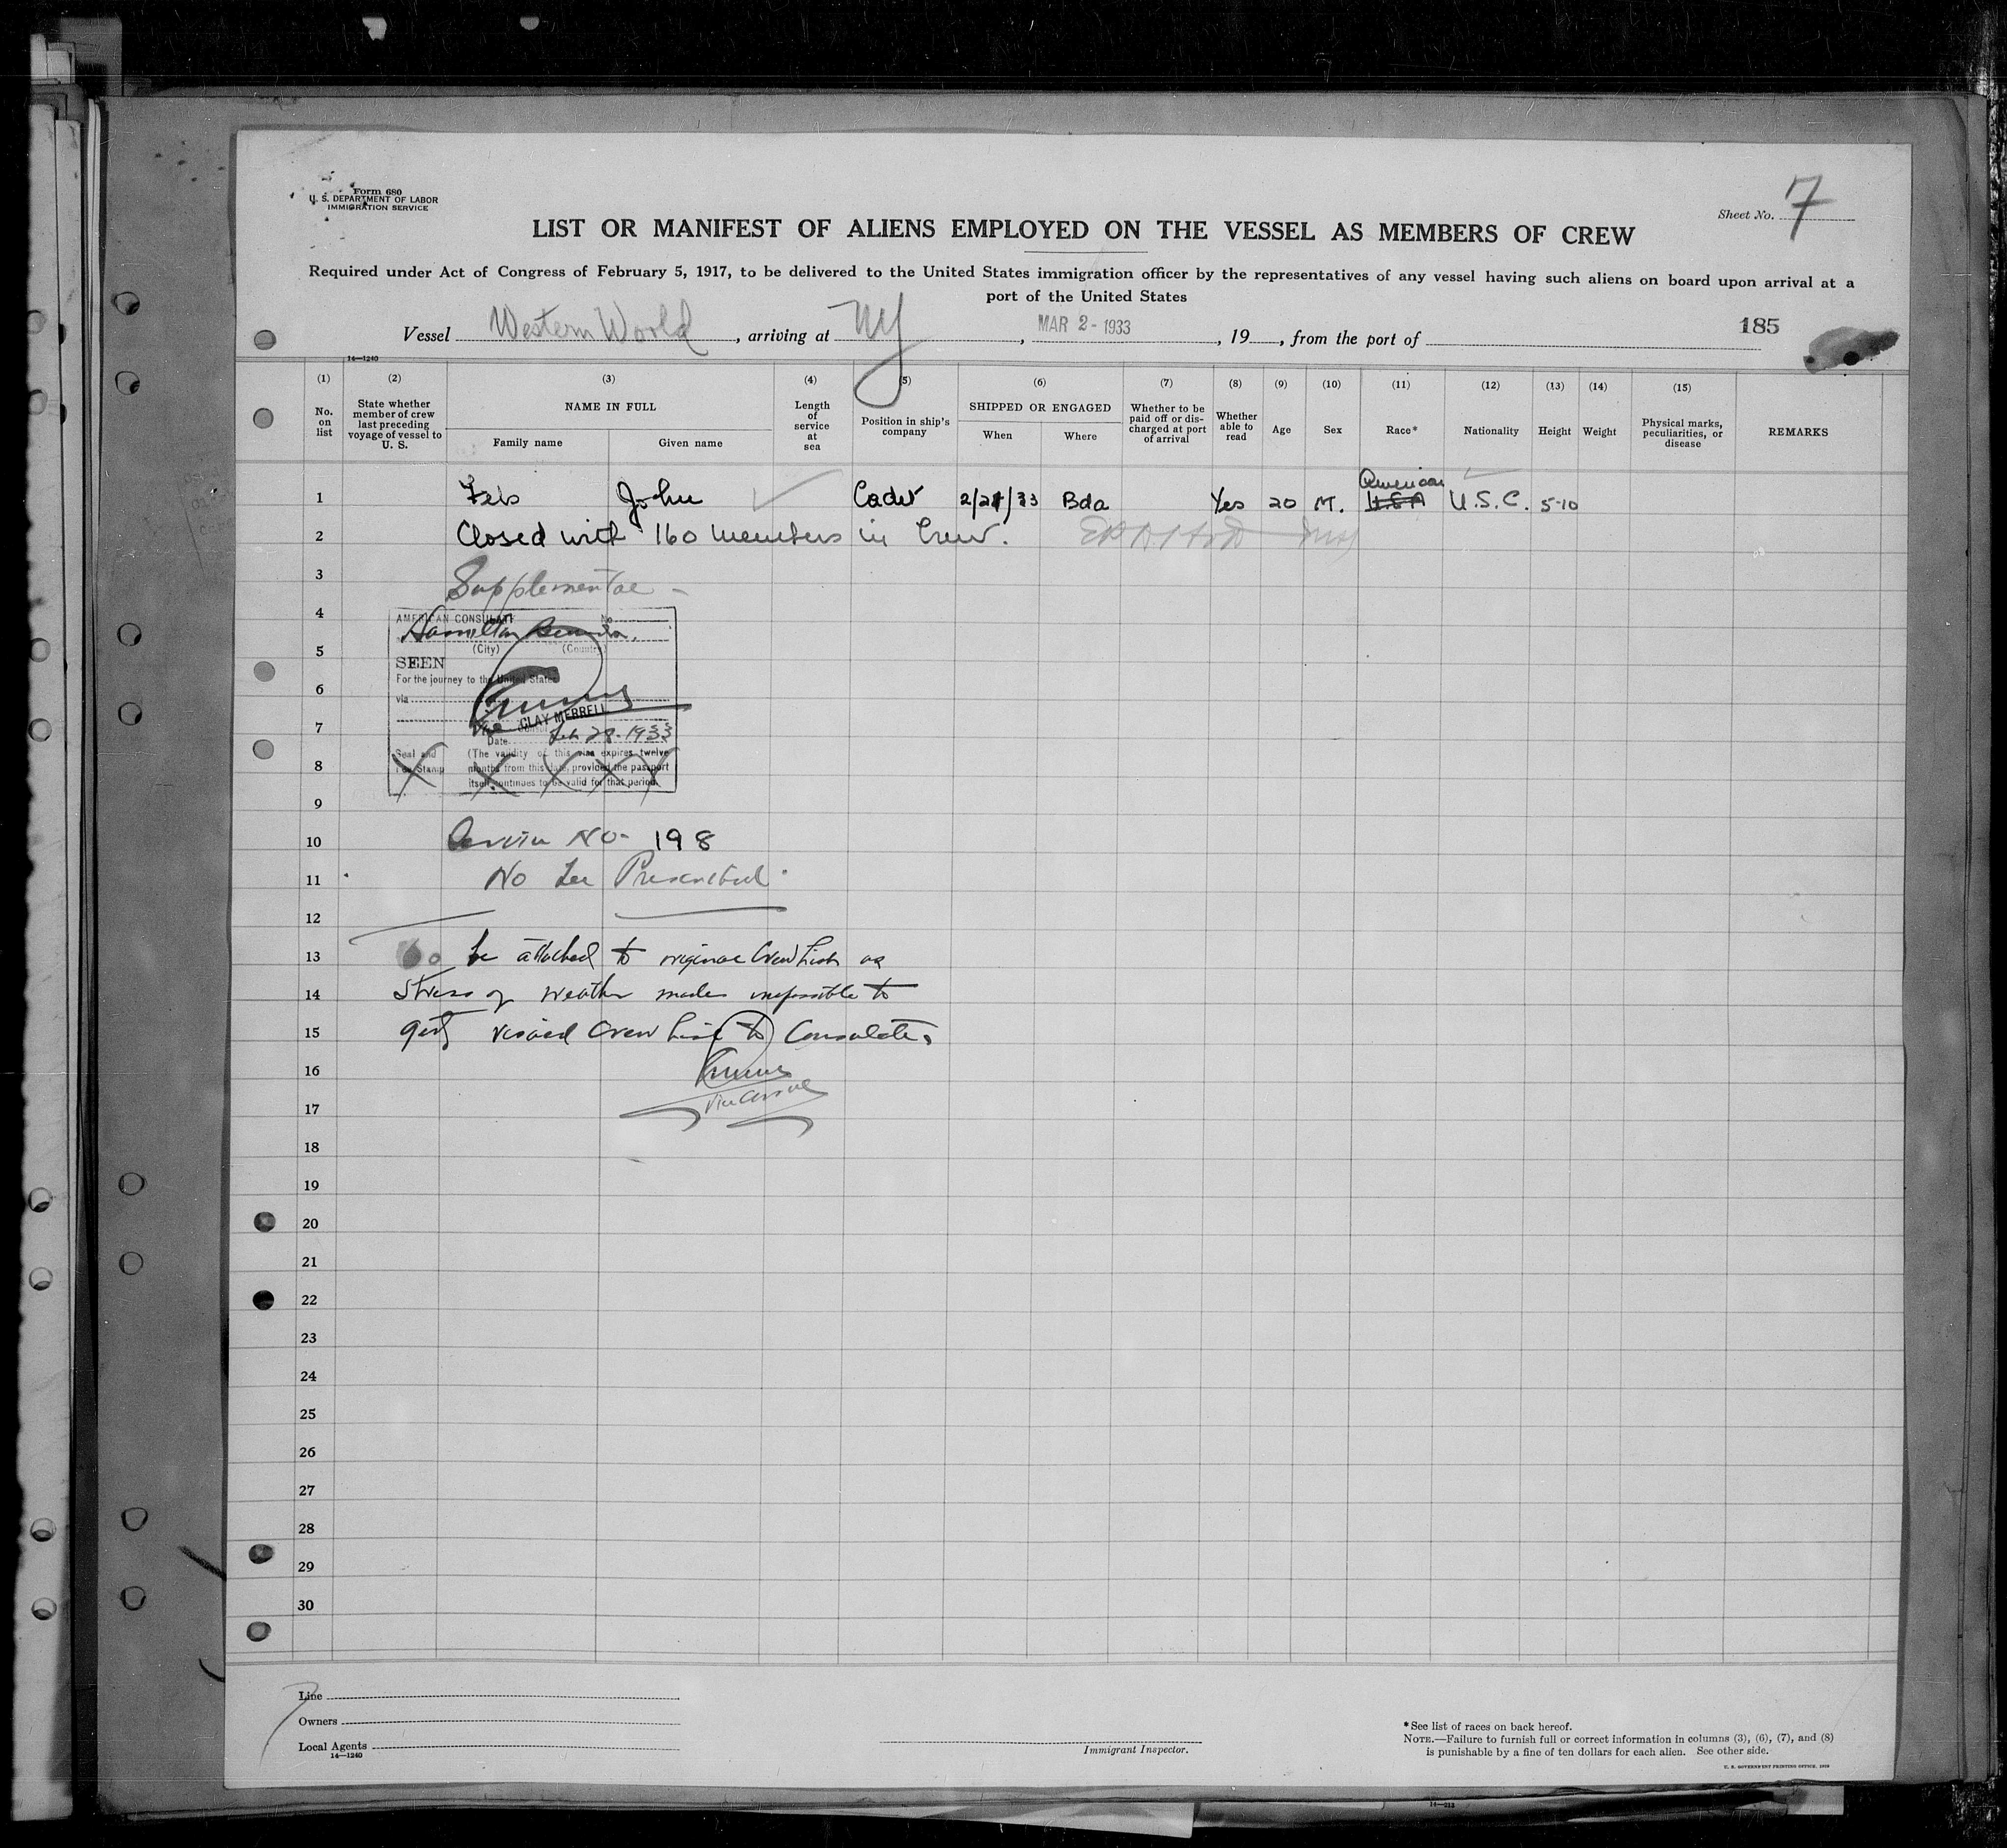 Form 680
U. S. DEPARTMENT OF LABOR
IMMIGRATION SERVICE
Sheet No. 7
LIST OR MANIFEST OF ALIENS EMPLOYED ON THE VESSEL AS MEMBERS OF CREW
Required under Act of Congress of February 5, 1917, to be delivered to the United States immigration officer by the representatives of any vessel having such aliens on board upon arrival at a
port of the United States
Vessel Western World, arriving at NY, MAR 2 - 1933, 19, from the port of
185
14—1240
(1) (2) (3) (4) (5) (6) (7) (8) (9) (10) (11) (12) (13) (14) (15)
No. on list
State whether member of crew last preceding voyage of vessel to U. S.
NAME IN FULL
Family name
Given name
Length of service at sea
Position in ship's company
SHIPPED OR ENGAGED
When
Where
Whether to be paid off or discharged at port of arrival
Whether able to read
Age
Sex
Race*
Nationality
Height
Weight
Physical marks, peculiarities, or disease
REMARKS
American
1 John Cadet 2/28/33 Bda Yes 20 M. USA U.S.C. 5-10
2 Closed with 160 members in Crew.
3 Supplemental -
4 AMERICAN CONSULATE No
Hamilton Bermuda.
5 (City) (Country)
SEEN
For the journey to the United States
6 via
7 Vice CLAY MERRELL
Date Feb 28-1933
Seal and (The validity of this visa expires twelve
8 Fee Stamp months from this date, provided the passport
itself continues to be valid for that period.
9
10 Service No- 198
11 No fee Prescribed.
12
13 To be attached to original Crew List as
14 Stress of weather made impossible to
15 get visaed Crew List to Consulate.
16
17 Vice Consul
18
19
20
21
22
23
24
25
26
27
28
29
30
Line
Owners
Local Agents
14—1240
Immigrant Inspector.
*See list of races on back hereof.
NOTE.—Failure to furnish full or correct information in columns (3), (6), (7), and (8)
is punishable by a fine of ten dollars for each alien. See other side.